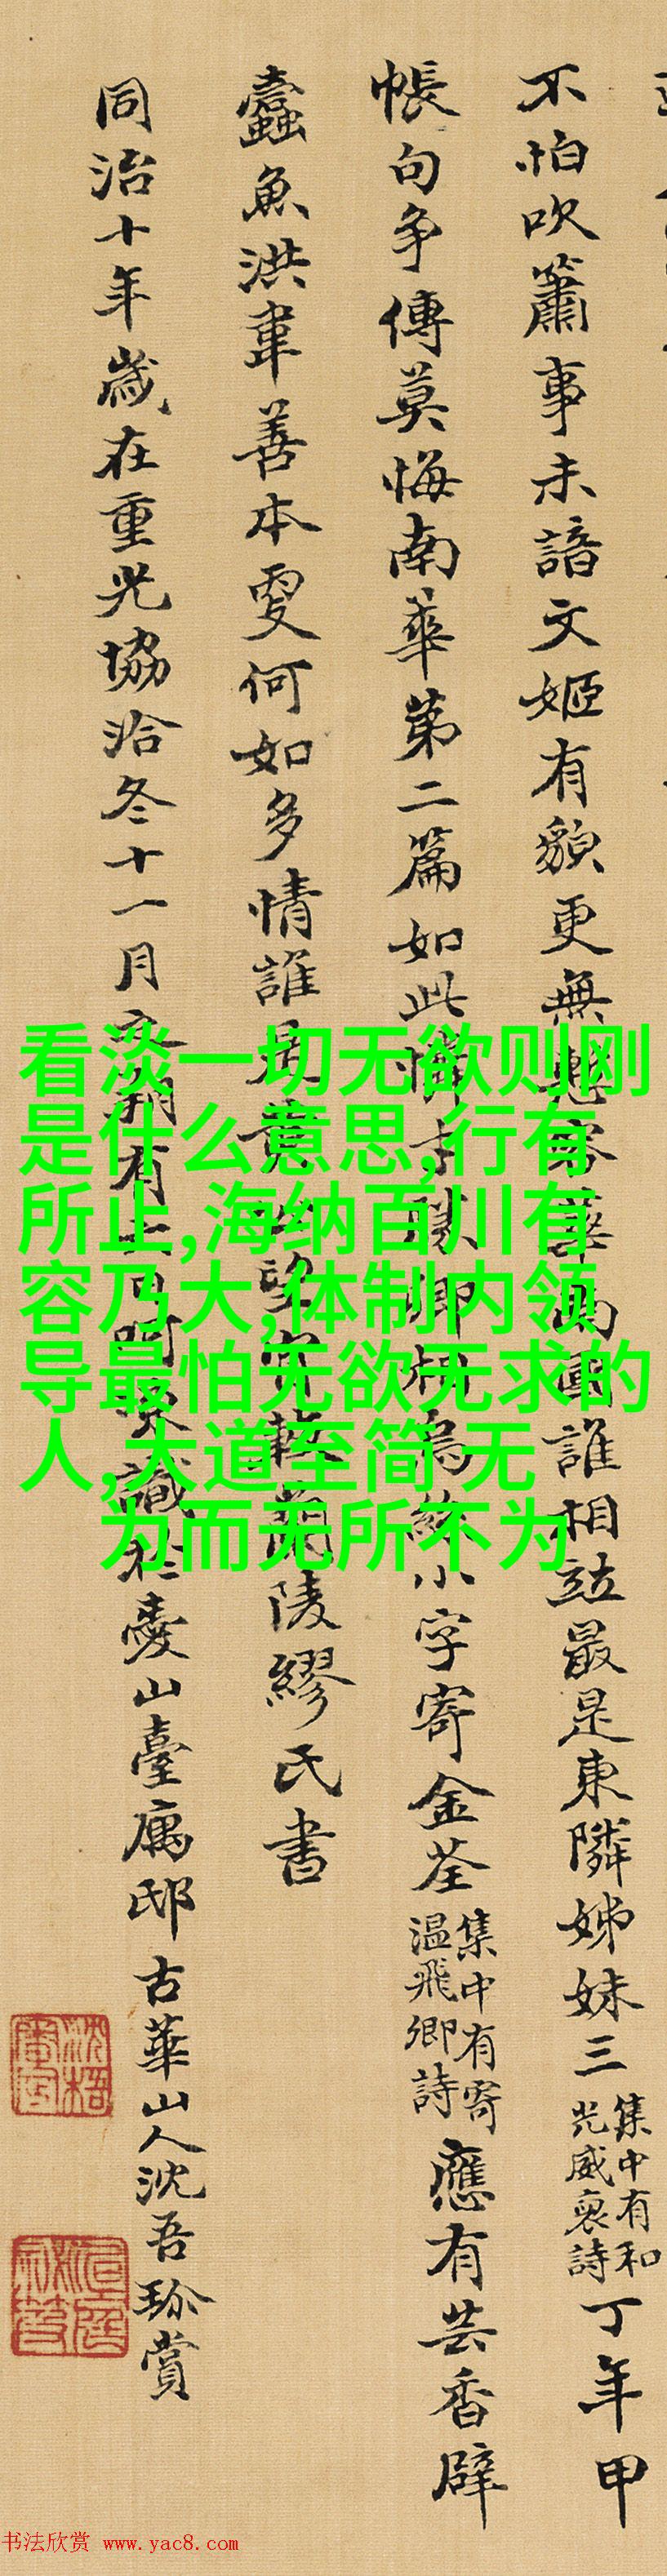 不怕吹簫事未諳文姬有貌更無慙容華兩團誰相竝最是東隣姊妹三
集中有和
光威裒詩
丁年甲
帳句争傳莫悔南華第二篇如此憐才勝卿相烏絲小字寄金荃
集中有寄
温飛卿詩
應有芸香辟
蠹魚洪韋善本夐何如多情誰是黄
蘭陵繆氏書
同治十年歲在重光協洽冬十一月文朔有
識於
山臺寓邸古華山人沈吾珎賞
看淡一切无欲则刚
是什么意思,行有
所止,海纳百川有
容乃大,体制内领
导最怕无欲无求的
人,大道至简 无
为而无所不为
书法欣赏 www.yac8.com